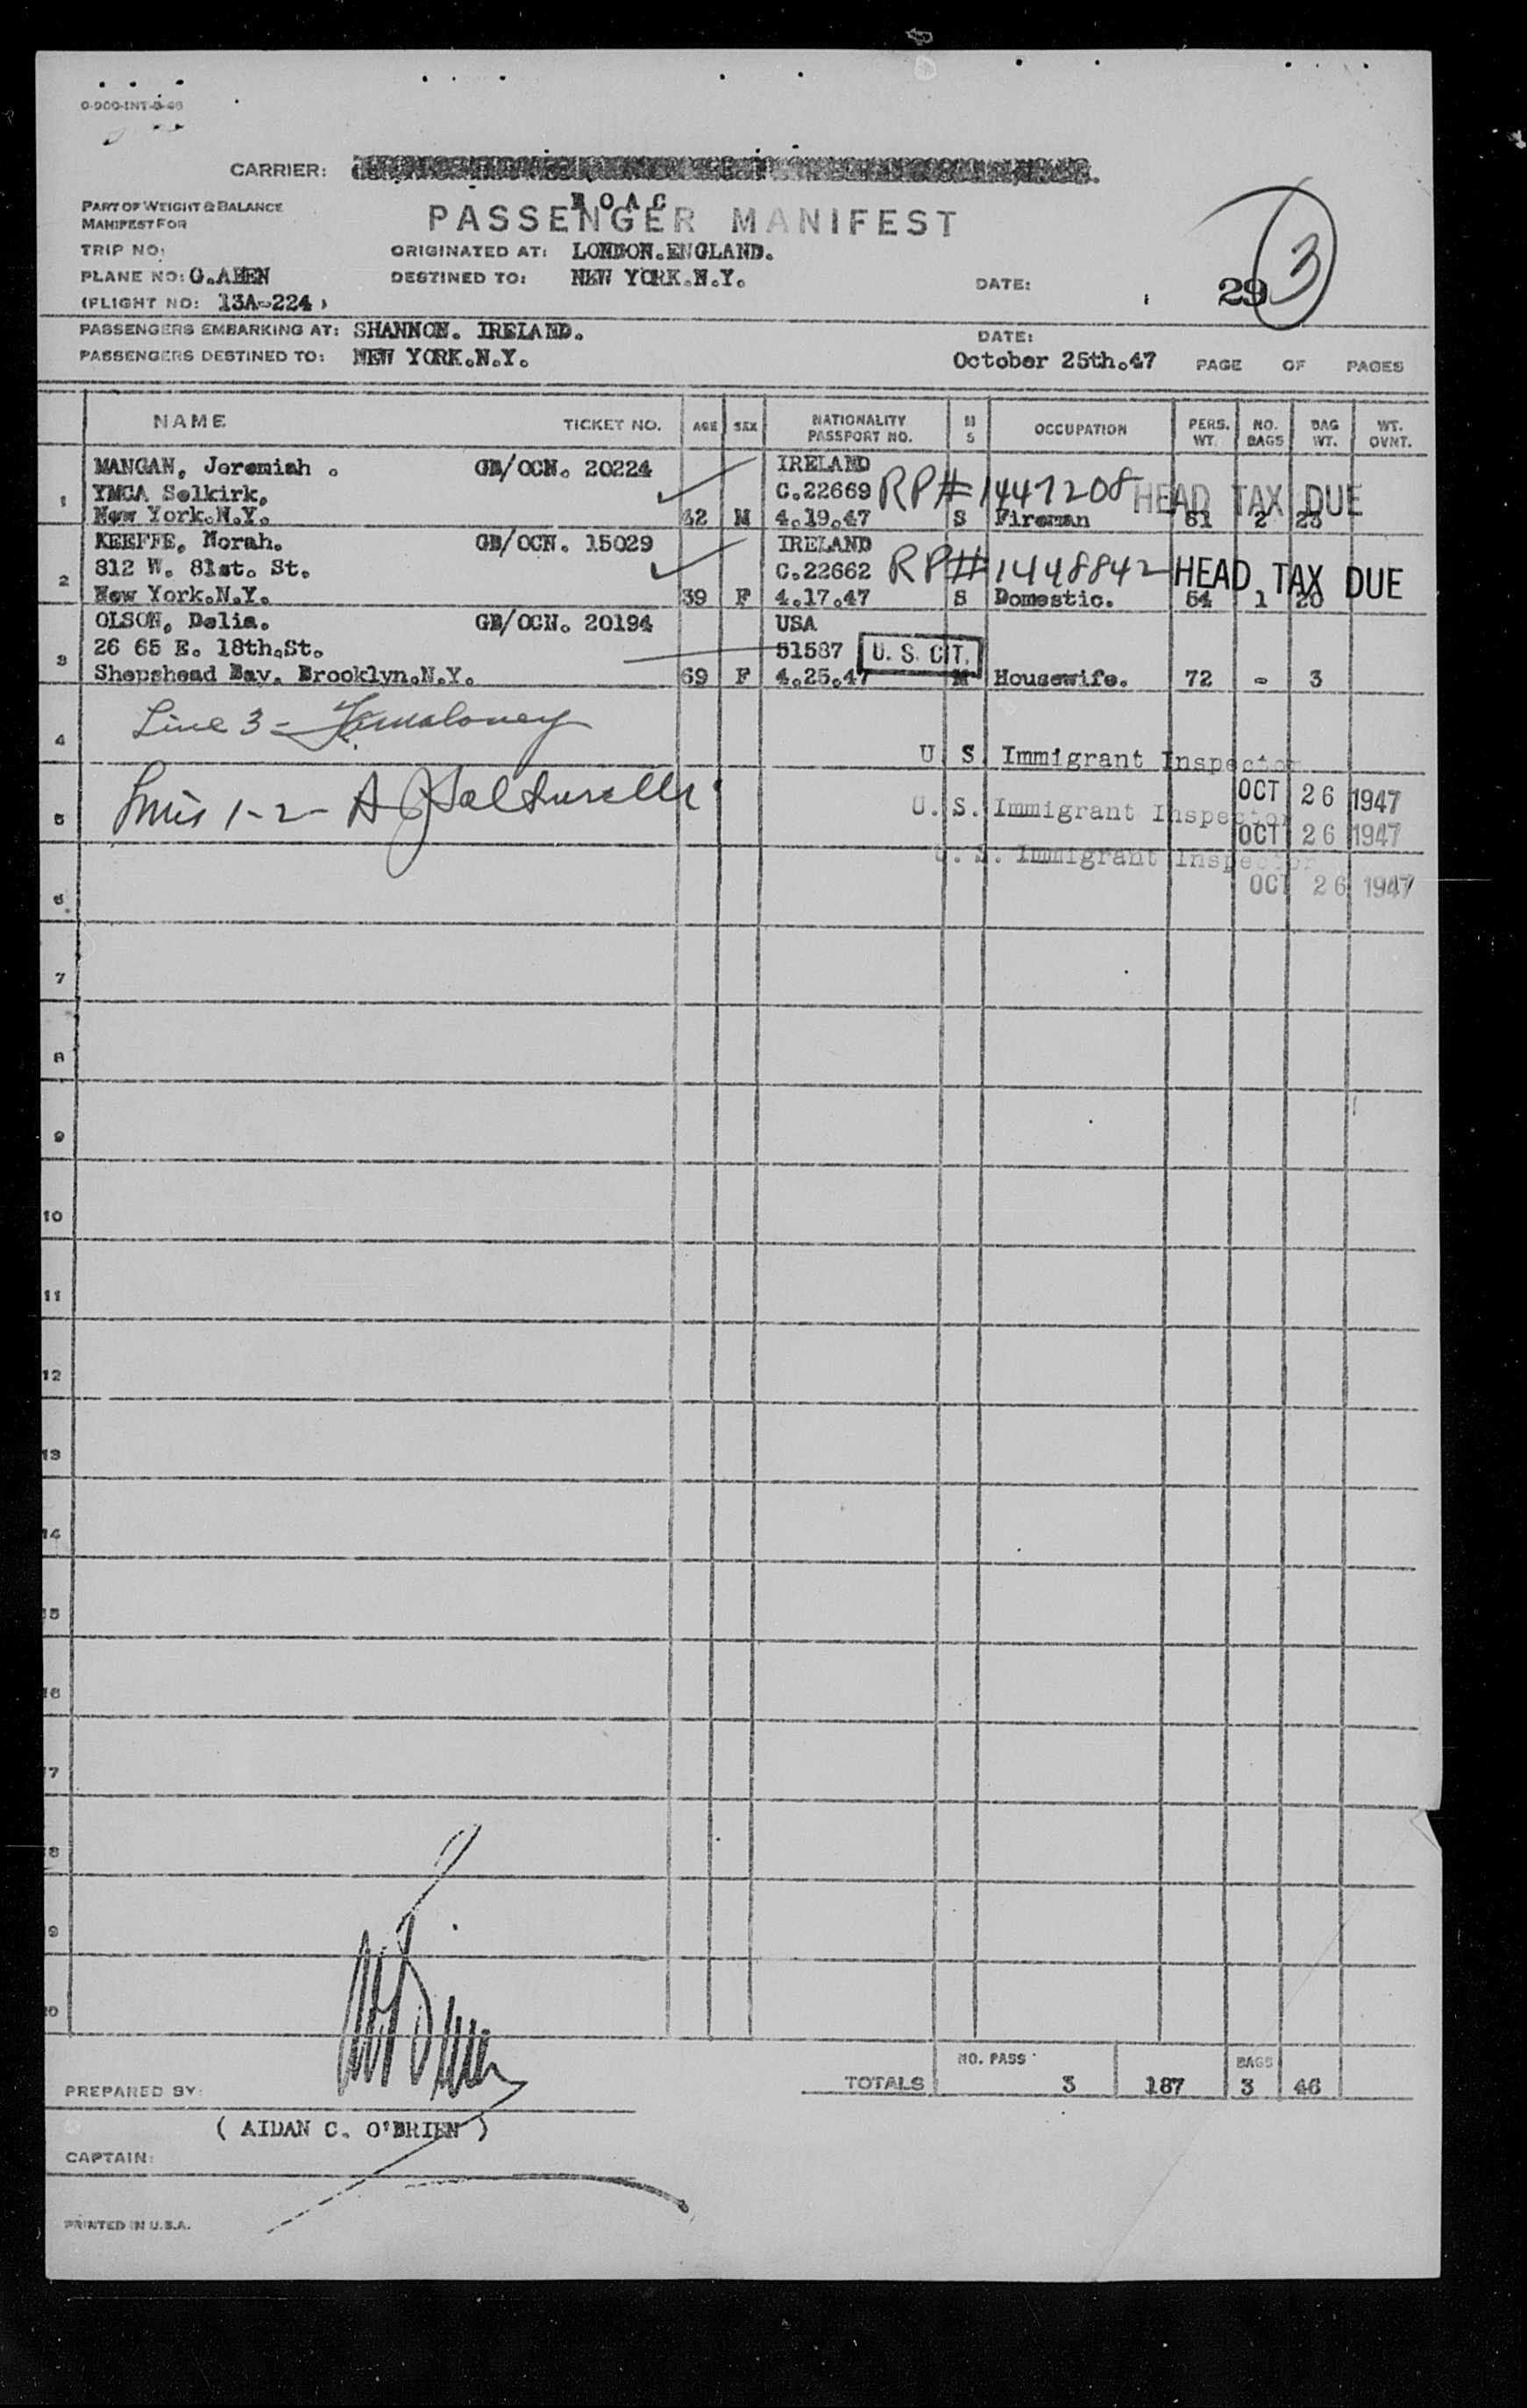 0-900-INT-8-46
CARRIER:
BOAC
PART OF WEIGHT & BALANCE
MANIFEST FOR
PASSENGER MANIFEST
TRIP NO:
ORIGINATED AT: LONDON.ENGLAND.
PLANE NO: G.AHEN
DESTINED TO: NEW YORK.N.Y.
DATE:
29 3
(FLIGHT NO: 13A-224)
PASSENGERS EMBARKING AT: SHANNON. IRELAND.
DATE:
PASSENGERS DESTINED TO: NEW YORK.N.Y.
October 25th.47 PAGE OF PAGES
NAME TICKET NO. AGE SEX NATIONALITY PASSPORT NO. M S OCCUPATION PERS. WT. NO. BAGS BAG WT. WT. OVNT.
MANGAN, Jeremiah . GB/OCN. 20224 IRELAND
YMCA Selkirk, C.22669 RP# 1447208 HEAD TAX DUE
1 New York.N.Y. 42 M 4.19.47 S Fireman 61 2 23
KEEFFE, Norah. GB/OCN. 15029 IRELAND
2 312 W. 81st. St. C.22662 RP# 1448842 HEAD TAX DUE
New York.N.Y. 39 F 4.17.47 S Domestic. 54 1 20
OLSON, Delia. GB/OCN. 20194 USA
26 65 E. 18th.St. 51587 U. S. CIT.
3 Shepshead Bay. Brooklyn.N.Y. 69 F 4.25.47 M Housewife. 72 - 3
Line 3 -
4
U S Immigrant Inspector
OCT 26 1947
5
Lines 1-2-
U. S. Immigrant Inspector
OCT 26 1947
U. S. Immigrant Inspector
6
OCT 26 1947
7
8
9
10
11
12
13
14
15
16
7
8
9
0
NO. PASS BAGS
PREPARED BY:
TOTALS 3 187 3 46
( AIDAN C. O'BRIEN )
CAPTAIN:
PRINTED IN U.S.A.